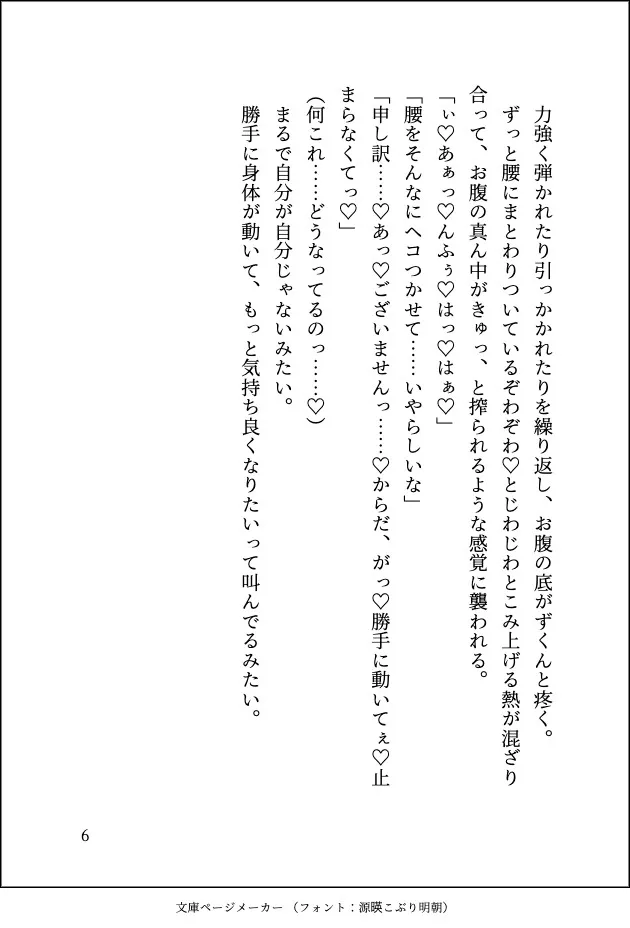 力強く弾かれたり引っかかれたりを繰り返し、お腹の底がずくんと疼く。
ずっと腰にまとわりついているぞわぞわ♡とじわじわとこみ上げる熱が混ざり
合って、お腹の真ん中がきゅっ、と搾られるような感覚に襲われる。
「ぃ♡あぁっ♡んふぅ♡はっ♡はぁ♡」
「腰をそんなにヘコつかせて……いやらしいな」
「申し訳……♡あっ♡ございませんっ……♡からだ、がっ♡勝手に動いてぇ♡止
まらなくてっ♡」
(何これ……どうなってるのっ……♡)
まるで自分が自分じゃないみたい。
勝手に身体が動いて、もっと気持ち良くなりたいって叫んでるみたい。
6
文庫ページメーカー（フォント：源暎こぶり明朝）